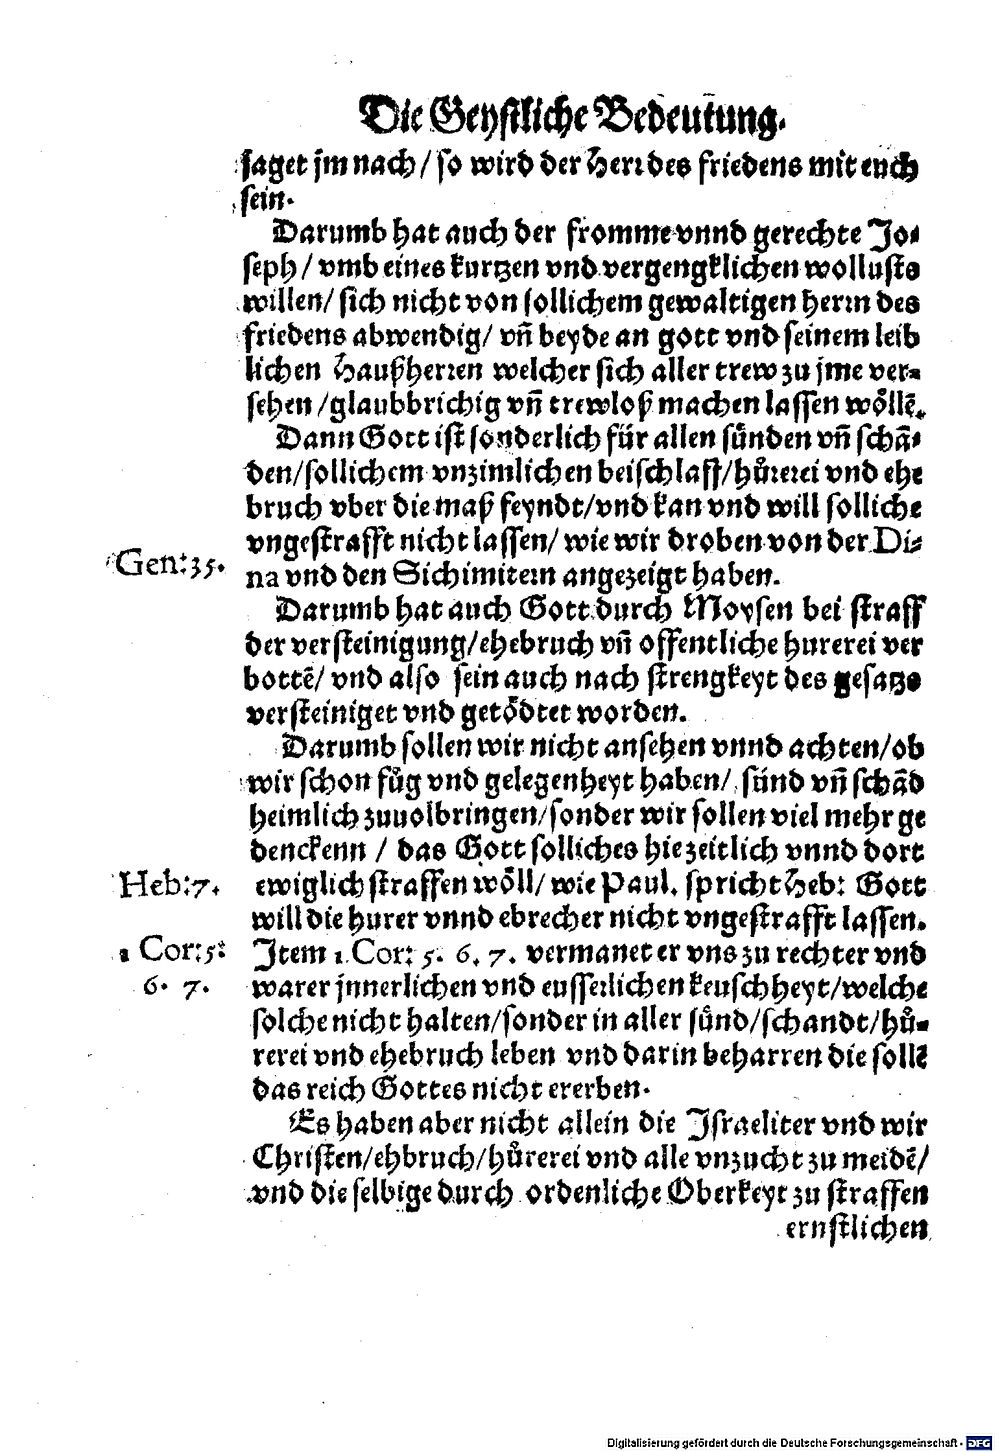 Die Geystliche Bedeutung.
saget jm nach/ so wird der Herr des friedens mit euch
sein.
Darumb hat auch der fromme vnnd gerechte Jo⸗
seph/ vmb eines kurtzen vnd vergengklichen wollusts
willen/ sich nicht von sollichem gewaltigen herrn des
friedens abwendig/ vñ beyde an gott vnd seinem leib
lichen Haußherren welcher sich aller trew zu jme ver⸗
sehen/ glaubbrichig vñ trewloß machen lassen wöllẽ.
Dann Gott ist sonderlich für allen sünden vñ schã⸗
den/ sollichem vnzimlichen beischlaff/ hůrerei vnd ehe
bruch vber die maß feyndt/ vnd kan vnd will solliche
vngestrafft nicht lassen/ wie wir droben von der Di⸗
Gen: 35. na vnd den Sichimitern angezeigt haben.
Darumb hat auch Gott durch Moysen bei straff
der versteinigung/ ehebruch vñ offentliche hurerei ver
bottẽ/ vnd also sein auch nach strengkeyt des gesatzs
versteiniget vnd getödtet worden.
Darumb sollen wir nicht ansehen vnnd achten/ ob
wir schon fůg vnd gelegenheyt haben/ sünd vñ schãd
heimlich zuuolbringen/ sonder wir sollen viel mehr ge
denckenn / das Gott solliches hie zeitlich vnnd dort
Heb: 7. ewiglich straffen wöll/ wie Paul. spricht Heb: Gott
will die hurer vnnd ebrecher nicht vngestrafft lassen.
1 Cor: 5: Jtem 1. Cor: 5. 6. 7. vermanet er vns zu rechter vnd
6. 7. warer jnnerlichen vnd eusserlichen keuschheyt/ welche
solche nicht halten/ sonder in aller sünd/ schandt/ hů⸗
rerei vnd ehebruch leben vnd darin beharren die sollẽ
das reich Gottes nicht ererben.
Es haben aber nicht allein die Jsraeliter vnd wir
Christen/ ehbruch/ hůrerei vnd alle vnzucht zu meidẽ/
vnd die selbige durch ordenliche Oberkeyt zu straffen
ernstlichen
Digitalisierung gefördert durch die Deutsche Forschungsgemeinschaft - DFG